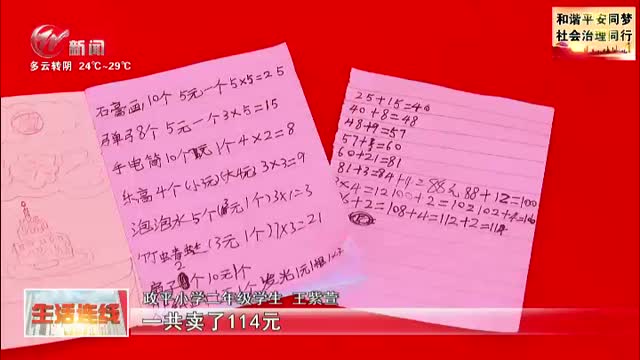 新闻
多云转阴 24℃~29℃
和谐平安同梦
社会治理同行
石膏画,10个 5元一个 5×5=25
弓单弓8个 5元一个 3×5=15
手电筒10个 1个 4×2=8
乐高4个 3×3=9
泡泡水5个 1个) 3×1=3
竹虫青蛙 (3元1个) 7×3=21
个10元1个
25+15=40
40+8=48
48+9=57
57+3=60
60+21=81
81+3=84+4=88元 88+12=100
×4=12 100+2=102 102+
+2=108+4=112+2=114
生活连线
政平小学二年级学生 王紫萱
一共卖了114元